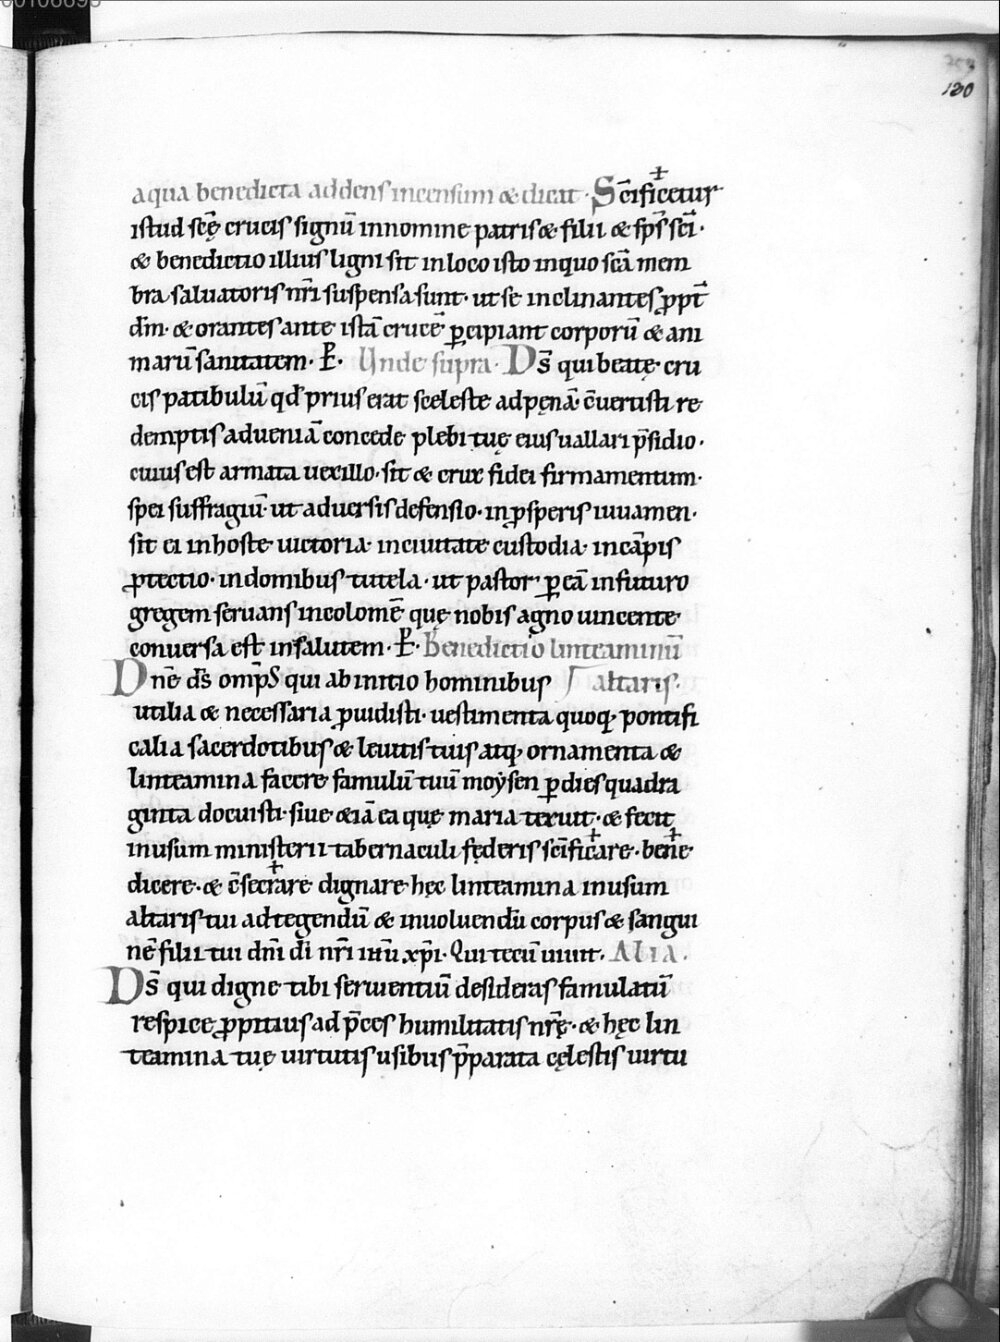 00106693
709
130
aqua benedicta addens incensum & dicat · Sc̄ific✝etur
istud scę̄ crucis signū innomine patris & filii & sp̄s sc̄i ·
& benedictio illius ligni sit inloco isto inquo sc̄a mem
bra saluatoris nr̄i suspensa sunt · ut se inclinantes ꝓpt̄
dm̄ · & orantes ante istā crucē ꝑcipiant corporū & ani
marū sanitatem · P̄ · Unde supra · Ds̄ qui beatę · cru
cis patibulū qd̄ prius erat sceleste adpęnā c̄uertisti re
demptis aduenia᷈ concede plebi tuę eius uallari p̄sidio ·
cuius est armata uexillo · sit & crux fidei firmamentum ·
spei suffragiū · ut aduersis defensio · inꝓsperis iuuamen ·
sit ei inhoste uictoria · inciuitate custodia · incāpis
ꝓtectio · indomibus tutela · ut pastor ꝑ eā infuturo
gregem seruans incolomē quę nobis agno uincente
conuersa est insalutem · P̄ · Benedictio linteaminū
Dn̄e ds̄ omp̄s qui abinitio hominibus altaris ·
utilia & necessaria ꝓuidisti · uestimenta quoq; pontifi
calia sacerdotibus & leuitis tuis atq; ornamenta &
linteamina facere famulū tuū moẏsen ꝑ dies quadra
ginta docuisti · siue &iā ea quę maria texuit · & fecit
inusum ministerii tabernaculi fęderis sc̄ific✝are · ben✝e
dicere · & c̄secr✝are dignare hęc linteamina inusum
altaris tui adtegendū & inuoluendū corpus & sangui
nē filii tui dn̄i dī nr̄i ihū xp̄i · Qui tecū uiuit · Alia ·
Ds̄ qui digne tibi seruientiū desideras famulatū
respice ꝓpitius ad p̄ces humilitatis nr̄ę · & hęc lin
teamina tuę uirtutis usibus p̄parata cęlestis uirtu